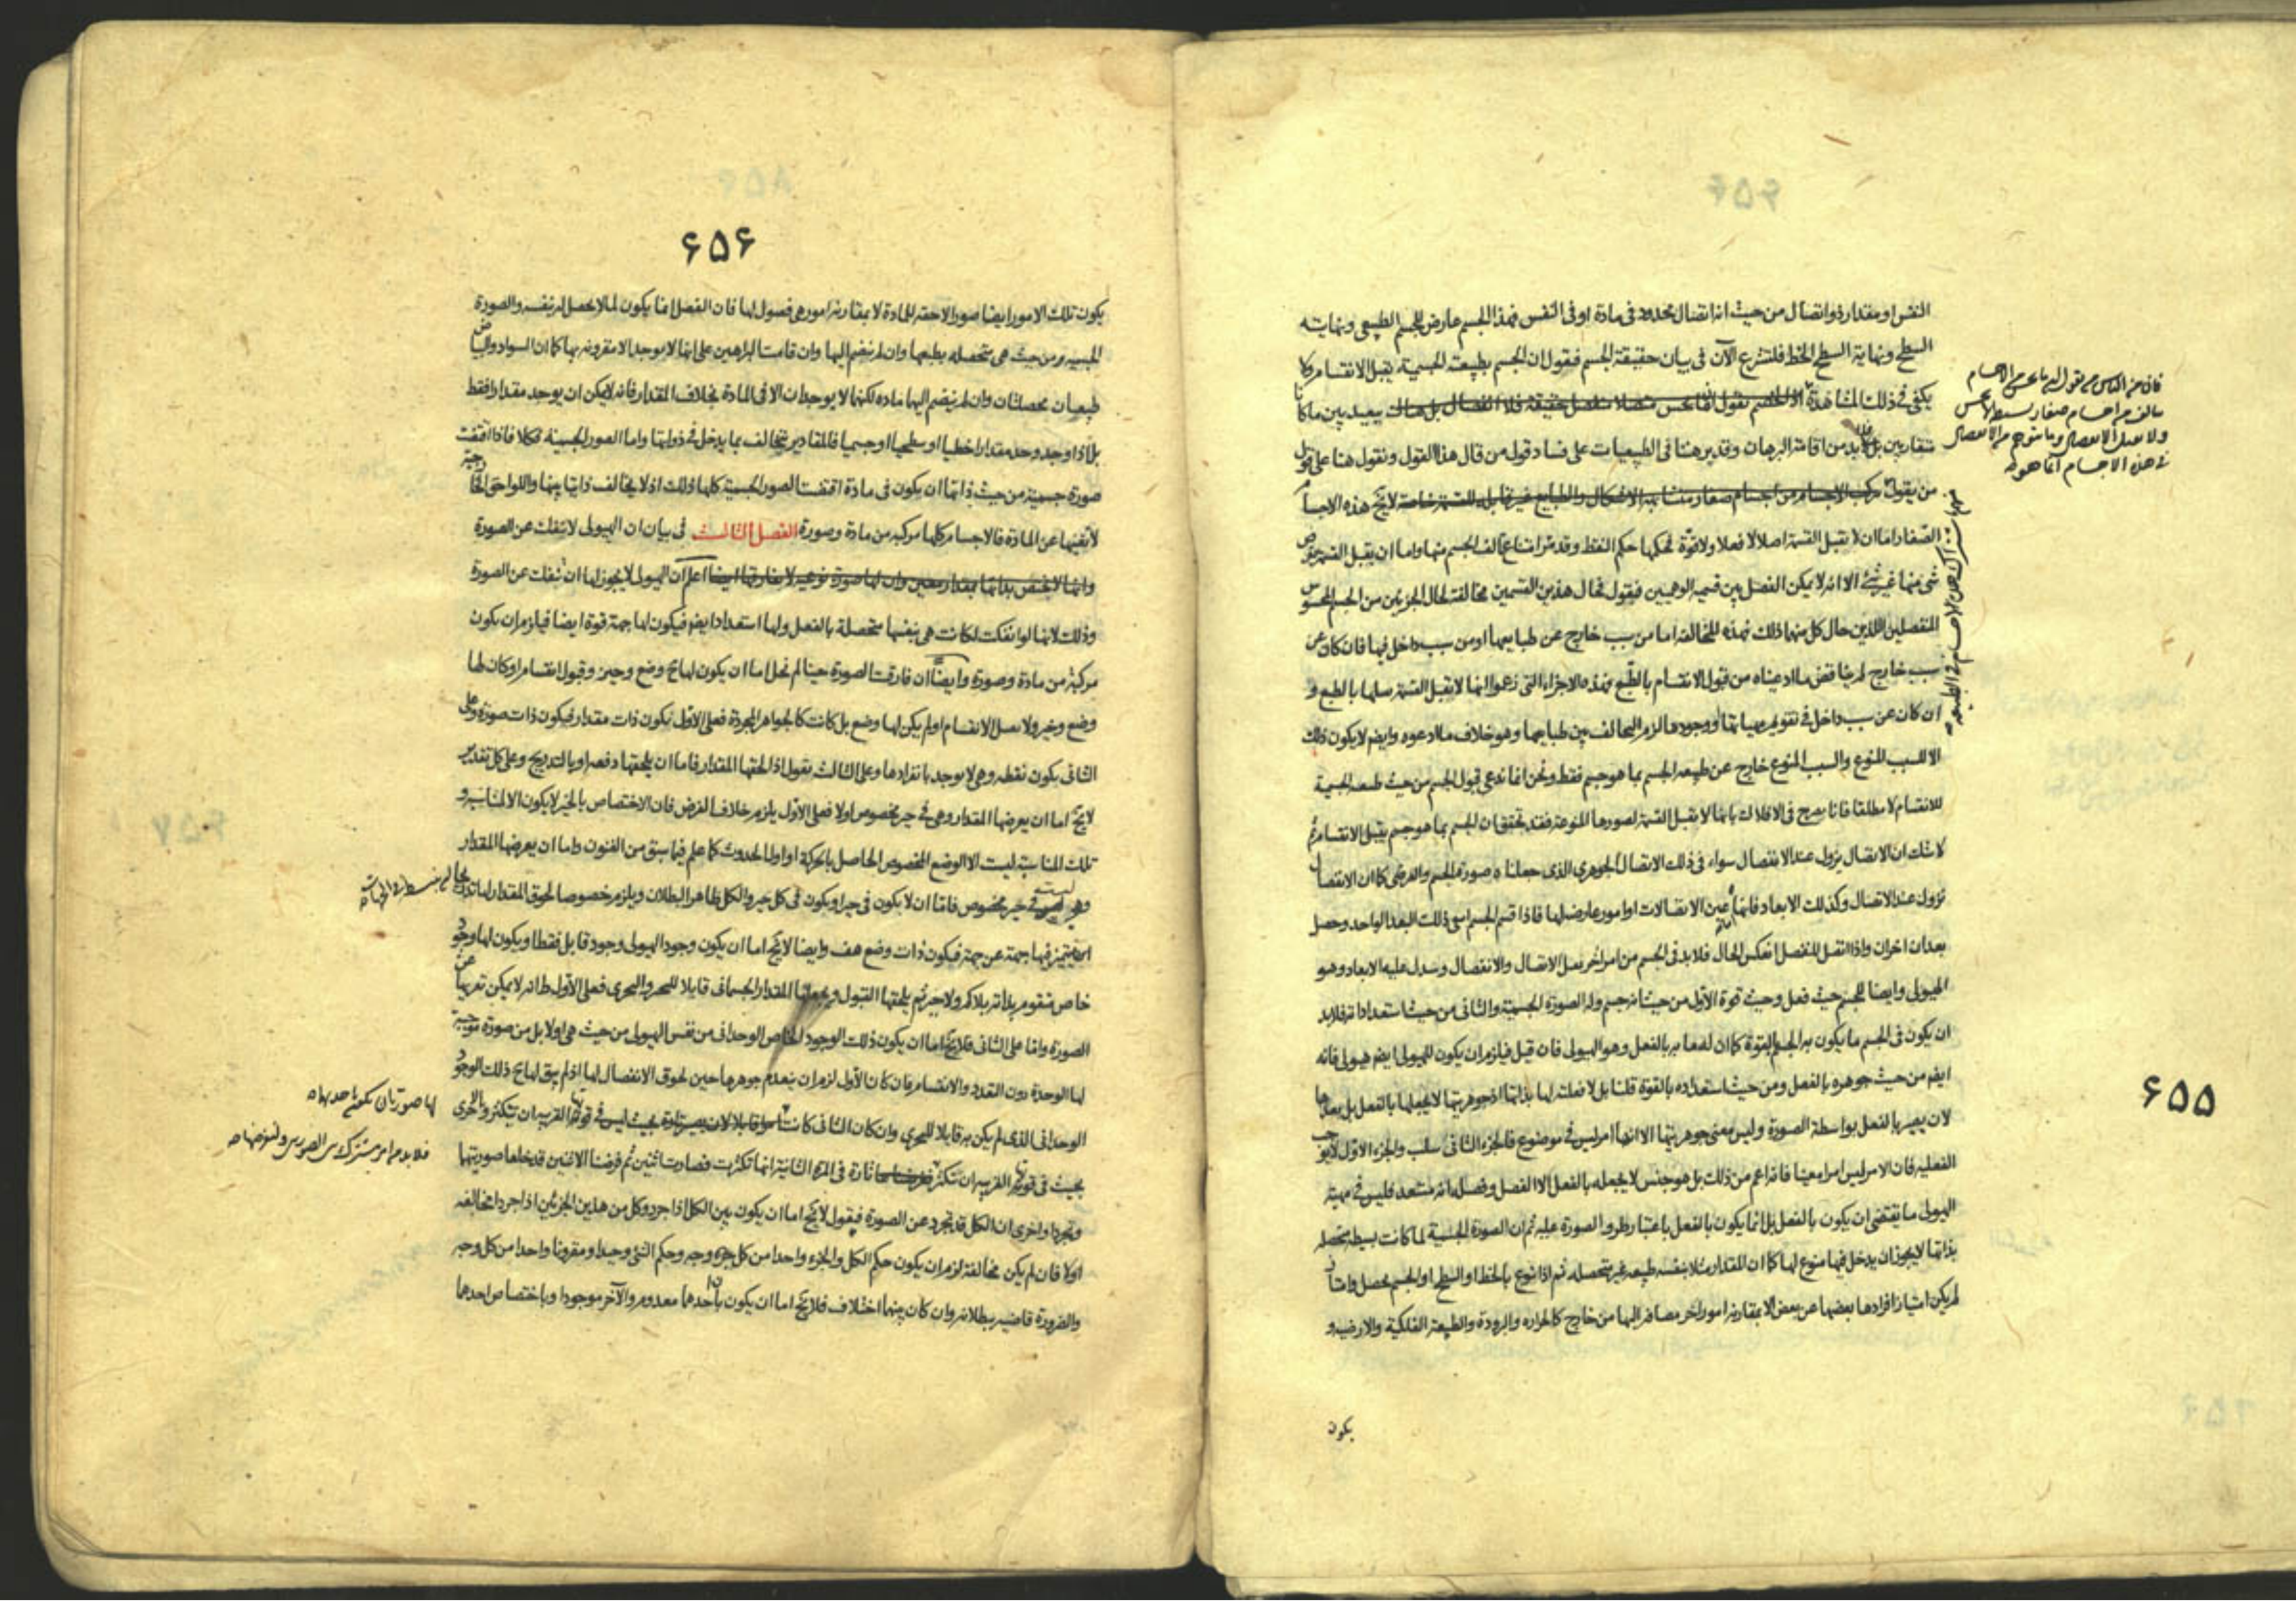 النفس او مقدار ذو اتصال من حيث انه اتصال محدود فى مادة او فى النفس فهذا الجسم عارض للجسم الطبيعى ونهايته
السطح ونهاية السطح الخط فلنشرع الآن فى بيان حقيقة الجسم فنقول ان الجسم بطبيعة الجسمية يقبل الانقسام ولا
يكفى فى ذلك المشاهدة
متقاربين بل لابد من اقامة البرهان وقد برهنا فى الطبيعيات على فساد قول من قال هذا القول ونقول هنا على قول
من يقول تركب الاجسام من اجسام صغار متشابهة الاشكال والطبايع غير قابله للقسمة لا يخ هذه الاجسام
الصغار اما ان لا تقبل القسمة اصلا لا فعلا ولا قوة فحكمها حكم النقط وقد مر امتناع تألف الجسم منها واما ان يقبل القسمة
شئ منها غير شئ الا انه لا يمكن الفصل بين قسميه الوهميين فنقول فحال هذين القسمين مخالفة لحال الجزئين من الجسم المحسوس
المنفصلين اللذين حال كل منهما ذلك فهذه المخالفة اما من سبب خارج عن طبايعهما او من سبب داخل فيها فان كان عن
سبب خارج لم يناقض ما ادعيناه من قبول الانقسام بالطبع فهذه الاجزاء التى زعموا انها لا يقبل القسمة سلمها بالطبع و
ان كان عن سبب داخل فى تقويم مهياتها او وجودها لزم التخالف بين طبايعها وهو خلاف ما ادعوه وايضم لا يكون ذلك
الا للسبب المنوع والسبب المنوع خارج عن طبيعه الجسم بما هو جسم فقط ونحن انما ندعى قبول الجسم من حيث طبيعه الجسمية
للانقسام لا مطلقا فانا نصرح فى الافلاك بانها لا تقبل القسمة لصورها المنوعة فقد تحقق ان الجسم بما هو جسم يقبل الانقسام ثم
لا شك ان الاتصال يزول عند الانفصال سواء فى ذلك الاتصال الجوهرى الذى جعلناه صورة الجسم والعرضى كما ان الانفصال
تزول عند الاتصال وكذلك الابعاد فانها عين الاتصالات او امور عارضة لها فاذا قسم الجسم انتفى ذلك البعد الواحد وحصل
بعدان اخران واذا اتصل المنفصل انعكس الحال فلا بد فى الجسم من امر اخر يقبل الاتصال والانفصال وتبدل عليه الابعاد وهو
الهيولى وايضا للجسم حيث فعل وحيث قوة الاول من حيث انه جسم وله الصورة الجسمية والثانى من حيث استعداداته فلا بد
ان يكون فى الجسم ما يكون به الجسم بالقوة كما ان له ما به بالفعل وهو الهيولى فان قيل فيلزم ان يكون للهيولى ايضم هيولى فانه
ايضم من حيث جوهره بالفعل ومن حيث استعداده بالقوة قلنا بل لا فعلية لها بذاتها اذ جوهريتها لا يجعلها بالفعل بل يعدها
لان يصير بالفعل بواسطة الصورة وليس معنى جوهريتها الا انها امر ليس فى موضوع فالجزء الثانى سلب والجزء الاول لا يوجب
الفعليه فان الامر ليس امرا معينا فانه اعم من ذلك بل هو جنس لا يجعله بالفعل الا الفصل وفصله انه مستعد فليس فى مهية
الهيولى ما يقتضى ان يكون بالفعل بل انما يكون بالفعل باعتبار طرو الصورة عليه ثم ان الصورة الجسمية لما كانت بسيطه محصله
بذاتها لا يجوز ان يدخل فيها منوع لها كما ان المقدار مثلا بنفسه طبيعه غير متحصله ثم اذا تنوع بالخط او السطح او الجسم تحصل وانما
لم يكن امتياز افرادها بعضها عن بعض الا بمقارنه امور اخر مضافة اليها من خارج كالحراره والبرودة والطبيعة الفلكية والارضيه و
يكون
فان من الناس من يقول ان ما يحس من الاجسام
تألف من اجسام صغار بسيطه لا يحس
ولا يقبل الانفصال وما يتوهم من الانفصال
فى هذه الاجسام انما هو
۶۵۵
۶۵۶
يكون تلك الامور ايضا صورا لاحقه للمادة لا بمقارنه امور هى فصول لها فان الفصل انما يكون لما لا يحصل له بنفسه والصورة
الجسميه ومن حيث هى متحصله بطبعها وان لم ينضم اليها وان قامت البراهين على انها لا يوجد الا مقرونه بها كما ان السواد والبياض
طبيعيان محصلتان وان لم ينضم اليها ماده لكنهما لا يوجدان الا فى المادة بخلاف المقدار فانه لا يمكن ان يوجد مقدارا فقط
بل اذا وجد وجد مقدارا خطيا او سطحيا او جسميا فالمقادير تتخالف بما يدخل فى ذواتها واما الصور الجسمية فكلا فاذا اقتضت
صورة جسمية من حيث ذاتها ان يكون فى مادة اقتضت الصور الجسمية كلها ذلك اذ لا يخالف ذاتيا بينها واللواحق الخارجية
لا تغنيها عن المادة فالاجسام كلها مركبه من مادة وصورة الفصل الثالث فى بيان ان الهيولى لا تنفك عن الصورة
وانها لا يختص بذاتها بمقدار معين وان لها صورة نوعيه لا يفارقها ايضا اعلم ان الهيولى لا يجوز لها ان تنفك عن الصورة
وذلك لانها لو انفكت لكانت هى بنفسها متحصلة بالفعل ولها استعداد ايضم فيكون لها جهة قوة ايضا فيلزم ان يكون
مركبة من مادة وصورة وايضا ان فارقت الصورة حينا لم تخل اما ان يكون لها ح وضع وحيز وقبول انقسام او كان لها
وضع وحيز ولا تقبل الانقسام او لم يكن لها وضع بل كانت كالجواهر المجردة فعلى الاول يكون ذات مقدار فيكون ذات صورة وعلى
الثانى يكون نقطه وهى لا يوجد بانفرادها وعلى الثالث نقول اذا لحقها المقدار فاما ان يلحقها دفعة او بالتدريج وعلى كل تقدير
لا يخ اما ان يعرضها المقدار وهى فى حيز مخصوص اولا فعلى الاول يلزم خلاف الفرض فان الاختصاص بالحيز لا يكون الا لمناسبة و
تلك المناسبة ليست الا الوضع المخصوص الحاصل بالحركة او اول الحدوث كما علم فيما سبق من الفنون واما ان يعرضها المقدار
وهى ليست فى حيز مخصوص فاما ان لا يكون فى حيز او يكون فى كل حيز والكل ظاهر البطلان ويلزم خصوصا لحوق المقدار لها
يتميز فيها جهة عن جهة فيكون ذات وضع هف وايضا لا يخ اما ان يكون وجود الهيولى وجود قابل فقط او يكون لها وجود
خاص متقوم بذاته بلا كم ولا جزء ثم يلحقها القبول ويجعلها المقدار الجسمانى قابلا للتجزى فعلى الاول لا يمكن تعريها عن
الصورة واما على الثانى فلا يخ اما ان يكون ذلك الوجود الخاص الوحدانى من نفس الهيولى من حيث هى اولا بل من صورة توجبه
لها الوحدة دون التعدد والانقسام فان كان الاول لزم ان ينعدم جوهرها حين لحوق الانفصال لها اذ لم يبق لها ح ذلك الوجود
الوحدانى الذى لم يكن به قابلا للتجزى وان كان الثانى كانت
بحيث فى قوتها القريبه ان تتكثر
وتجردا واخرى ان الكل قد تجرد عن الصورة فنقول لا يخ اما ان يكون بين الكل اذا جرد وكل من هذين الجزئين اذا جردا مخالفه
اولا فان لم يكن مخالفة لزم ان يكون حكم الكل والجزء واحدا من كل وجه وحكم الشئ وحيدا ومقرونا واحدا من كل وجه
والضرورة قاضيه ببطلانه وان كان بينهما اختلاف فلا يخ اما ان يكون بان احدهما معدوم والآخر موجودا وباختصاص احدهما
لها صورتان يكون احديهما
فلا بد من امر مشترك